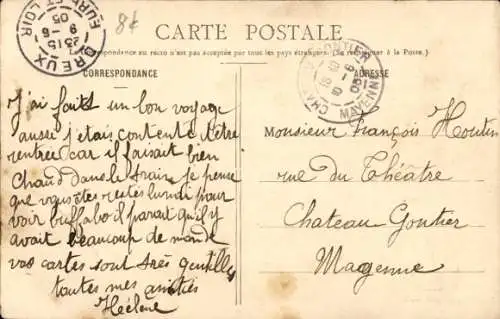 8€
CARTE POSTALE
La Correspondance au recto n'est pas acceptée par tous les pays étrangers. (Se renseigner à la Poste.)
CORRESPONDANCE
ADRESSE
DREUX
23-15
9-6
05
EURE ET LOIR
CHATEAU GONTIER
10-6
05
MAYENNE
J'ai faits un bon voyage
aussi j'étais contente d'être
rentrée car il faisait bien
Chaud dans le train je pense
que vous êtes restés lundi pour
voir buffabo il parait qu'il y
avait beaucoup de monde
vos cartes sont très gentilles
toutes mes amitiés
Hélène
Monsieur François Houtin
rue du Théâtre
Chateau Gontier
Mayenne